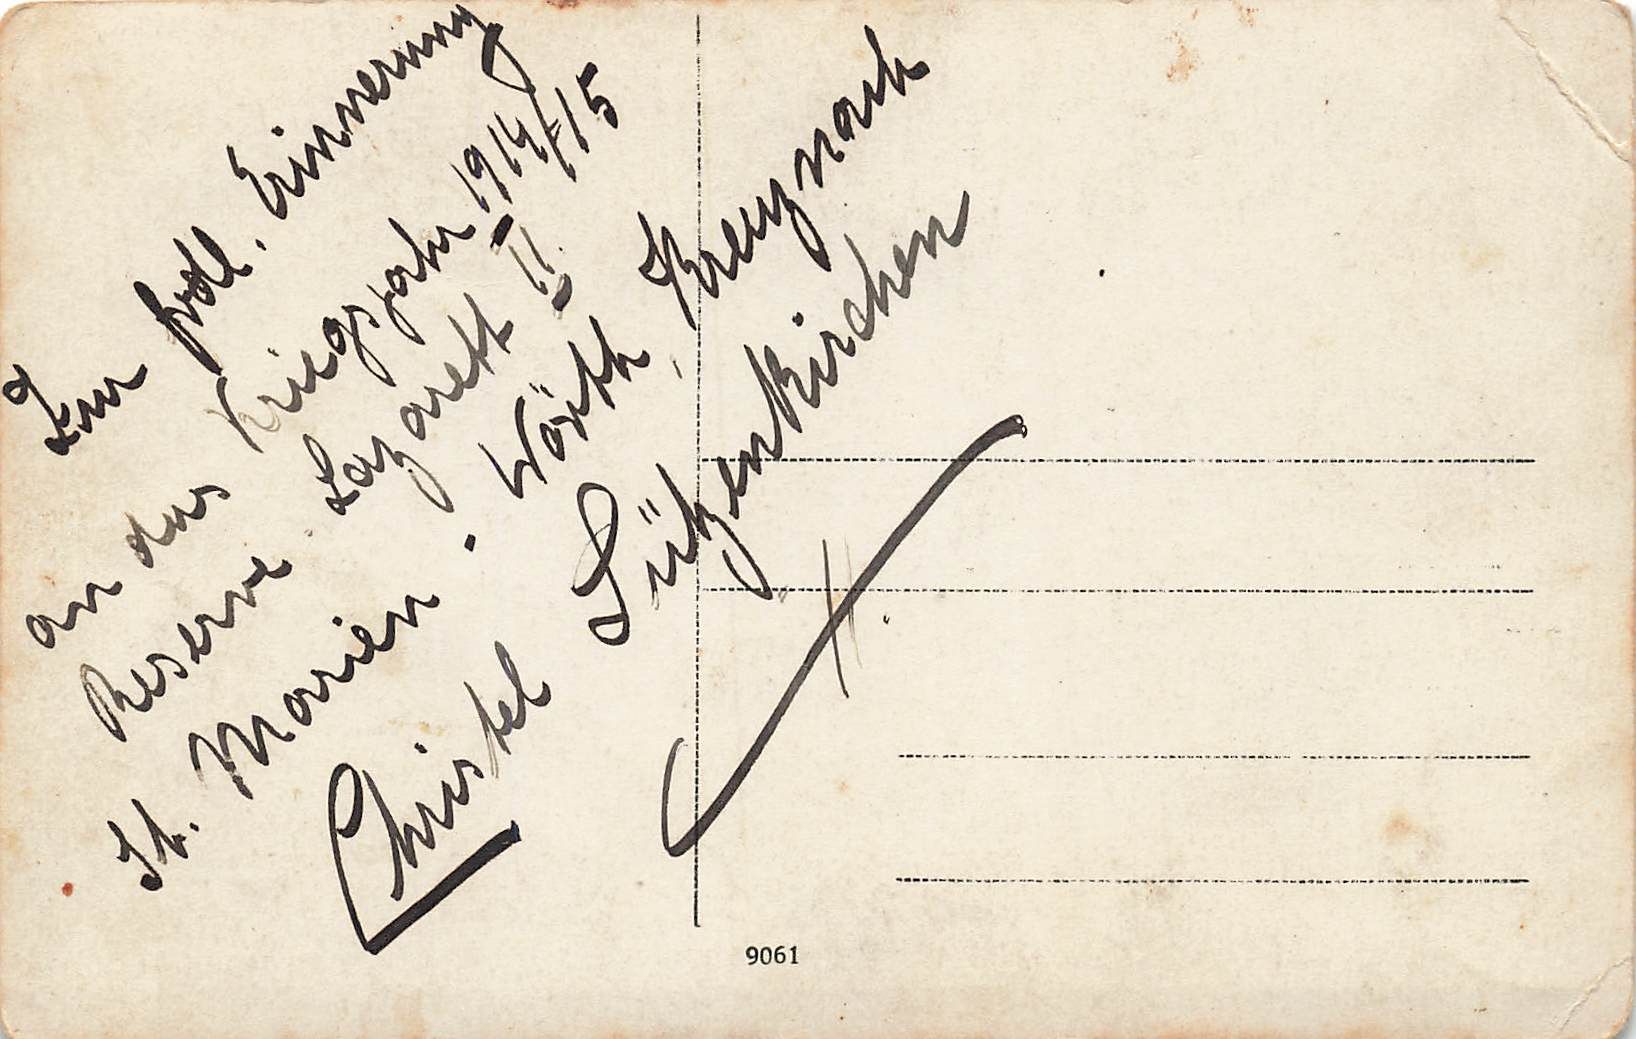 Zur frdl. Erinnerung
an das Kriegsjahr 1914/15
Reserve Lazarett II.
St. Marien-Wörth Kreuznach
Christel Lützenkirchen
9061